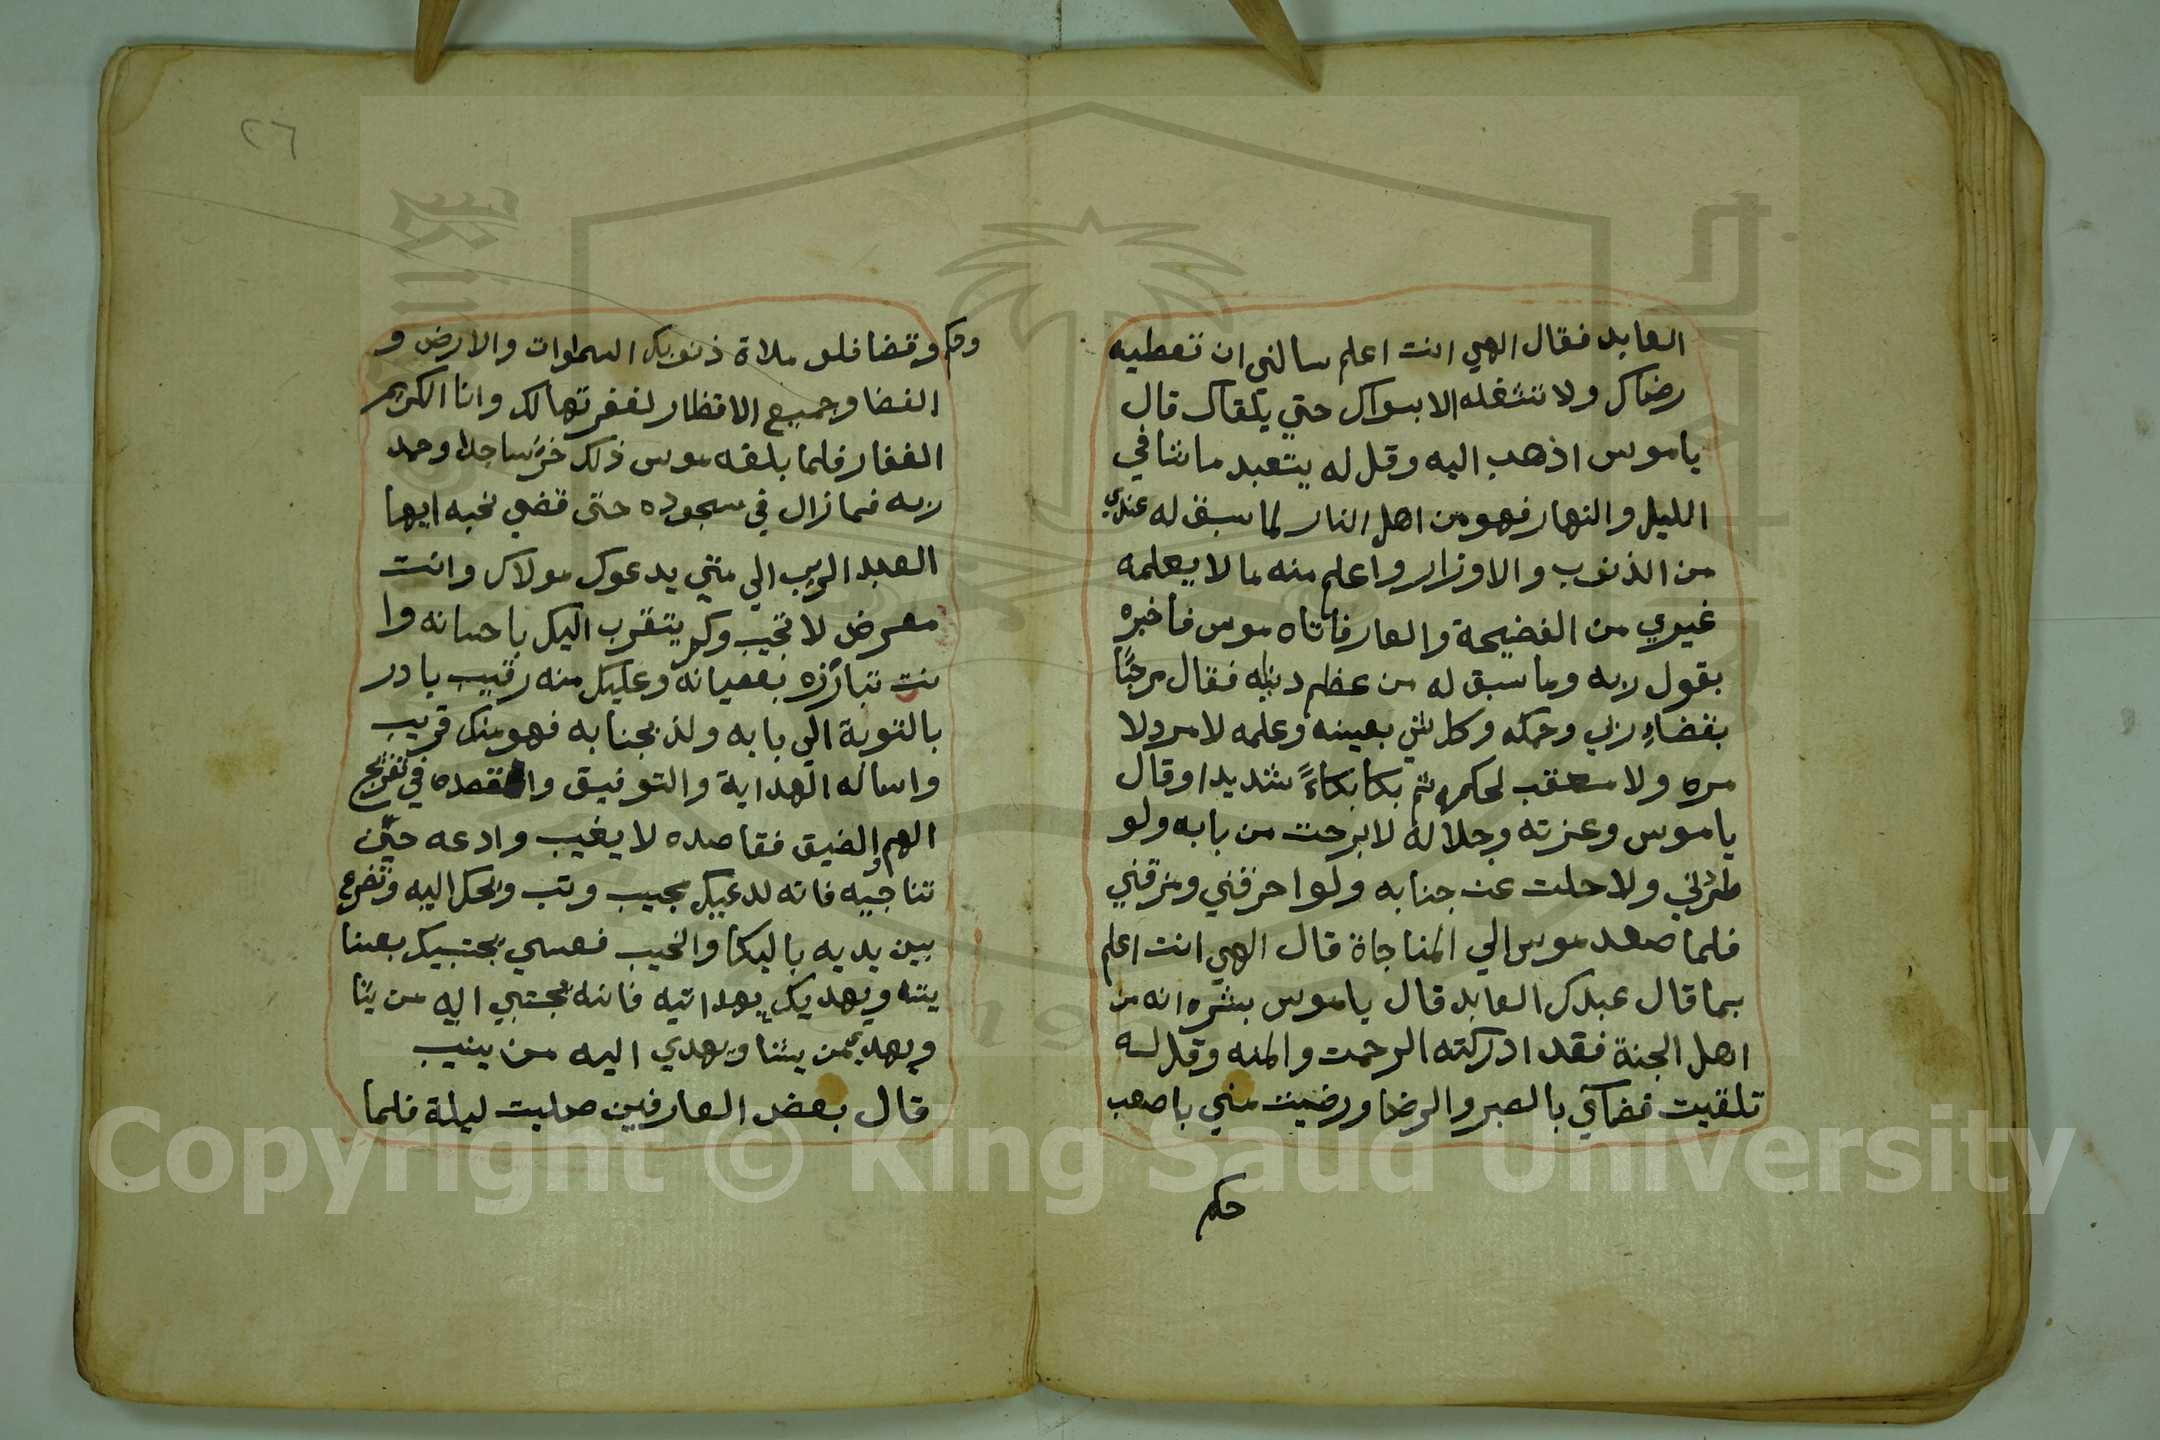 العابد فقال الهي انت اعلم سالني ان تعطيه
رضاك ولا تشغله الا بسواك حتي يلقاك قال
يا موسي اذهب اليه وقل له يتعبد ما شا في
الليل والنهار فهو من اهل النار لما سبق له عندي
من الذنوب والاوزار واعلم منه ما لا يعلمه
غيري من الفضيحة والعار فاتاه موسي فاخبره
بقول ربه وما سبق له من عظم ذنبه فقال مرحبًا
بقضاءِ ربي وحكمه وكل شي بعينه وعلمه لا مرد لا
مره ولا معقب لحكمه ثم بكا بكاءً شديدا وقال
يا موسي وعزته وجلاله لا برحت من بابه ولو
طردني ولا حلت عن جنابه ولو احرقني ومزقني
فلما صعد موسي الي المناجاة قال الهي انت اعلم
بما قال عبدك العابد قال يا موسي بشره انه من
اهل الجنة فقد ادركته الرحمت والمنه وقل له
تلقيت قضاي بالصبر والرضا ورضيت مني باصعب
حكم
وحكم وقضا فلو ملاة ذنوبك السموات والارض و
الفضا وجميع الاقطار لغفرتها لك وانا الكريم
الغفار فلما بلغه موسي ذلك خر ساجدا وحمد
ربه فما زال في سجوده حتى قضي نحبه ايها
العبد المريب الي متي يدعوك مولاك وانت
معرض لا تجيب وكم يتقرب اليك باحسانه وا
نت تبارزه بعصيانه وعليك منه رقيب بادر
بالتوبة الي بابه ولذ بجنابه فهو منك قريب
واساله الهداية والتوفيق واقصده في تفريج
الهم والضيق فقاصده لا يغيب وادعه حين
تناجيه فانه لداعيك مجيب وتب ويحك اليه وتضرع
بين يديه بالبكا والنحيب فعسي يجتبيك بعنا
يته ويهديك بهدايته فانه يجتبي اليه من يشا
ويهدي من يشا ويهدي اليه من ينيب
قال بعض العارفين صليت ليلة فلما
٢٦
Copyright © King Saud University